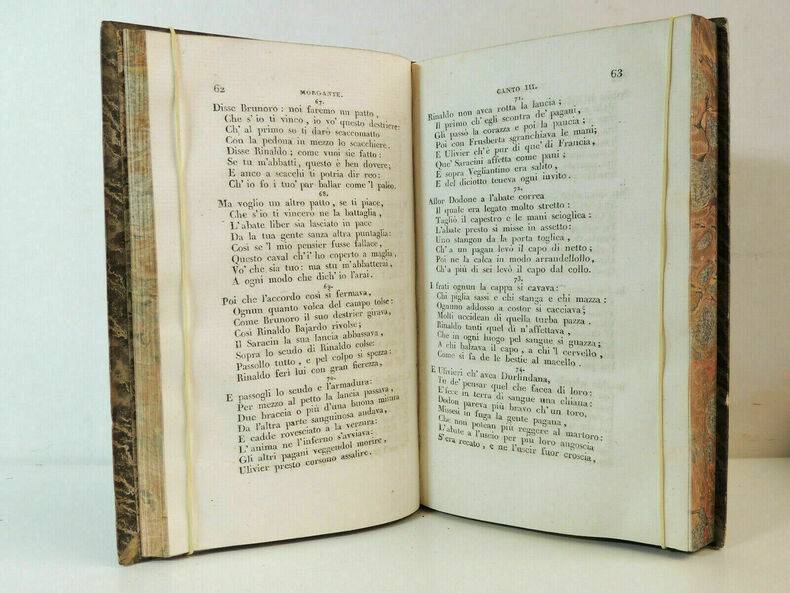 62
MORGANTE.
67.
Disse Brunoro: noi faremo un patto,
Che s' io ti vinco, io vo' questo destriere:
Ch' al primo so ti darò scaccomatto
Con la pedona in mezzo lo scacchiere.
Disse Rinaldo; come vuoi sie fatto:
Se tu m'abbatti, questo è ben dovere;
E anco a scacchi ti potria dir reo:
Ch' io fo i tuo' par ballar come 'l paleo.
68.
Ma voglio un altro patto, se ti piace,
Che s'io ti vincerò ne la battaglia,
L'abate liber sia lasciato in pace
Da la tua gente sanza altra puntaglia:
Così se 'l mio pensier fusse fallace,
Questo caval ch'i' ho coperto a maglia,
Vo' che sia tuo: ma stu m'abbatterai,
A ogni modo che dich' io l'arai.
69.
Poi che l'accordo così si fermava,
Ognun quanto volea del campo tolse:
Come Brunoro il suo destrier girava,
Così Rinaldo Bajardo rivolse;
Il Saracin la sua lancia abbassava,
Sopra lo scudo di Rinaldo colse:
Passollo tutto, e pel colpo si spezza:
Rinaldo ferì lui con gran fierezza,
70.
E passogli lo scudo e l'armadura:
Per mezzo al petto la lancia passava,
Due braccia o più d'una buona misura
Da l'altra parte sanguinosa andava,
E cadde rovesciato a la verzura:
L' anima ne l'inferno s'avviava:
Gli altri pagani veggendol morire,
Ulivier presto corsono assalire.
CANTO III.
63
71.
Rinaldo non avea rotta la lancia;
Il primo ch' egli scontra de' pagani,
Gli passò la corazza e poi la pancia;
Poi con Frusberta sgranchiava le mani;
E Ulivier ch'è pur di que' di Francia,
Que' Saracini affetta come pani;
E sopra Vegliantino era salito,
E del diciotto teneva ogni invito.
72.
Allor Dodone a l'abate correa
Il quale era legato molto stretto:
Tagliò il capestro e le mani scioglica:
L'abate presto si misse in assetto:
Uno stangon da la porta toglica,
Ch'a un pagan levò il capo di netto;
Poi ne la calca in modo arraudellollo,
Ch'a più di sei levò il capo dal collo.
73.
I frati ognun la cappa si cavava:
Chi piglia sassi e chi stanga e chi mazza:
Ognuno addosso a costor si cacciava;
Molti uccidean di quella turba pazza.
Rinaldo tanti quel dì n'affettava,
Che in ogni luogo pel sangue si guazza;
A chi balzava il capo, a chi 'l cervello,
Come si fa de le bestie al macello.
74.
E Ulivieri ch'avea Durlindana,
Tu de' pensar quel che facea di loro:
E'fece in terra di sangue una chiana:
Dodon pareva più bravo ch'un toro,
Missesi in fuga la gente pagana,
Che non potean più reggere al martoro:
L'abate a l'uscio per più loro angoscia
S'era recato, e ne l'uscir fuor croscia,